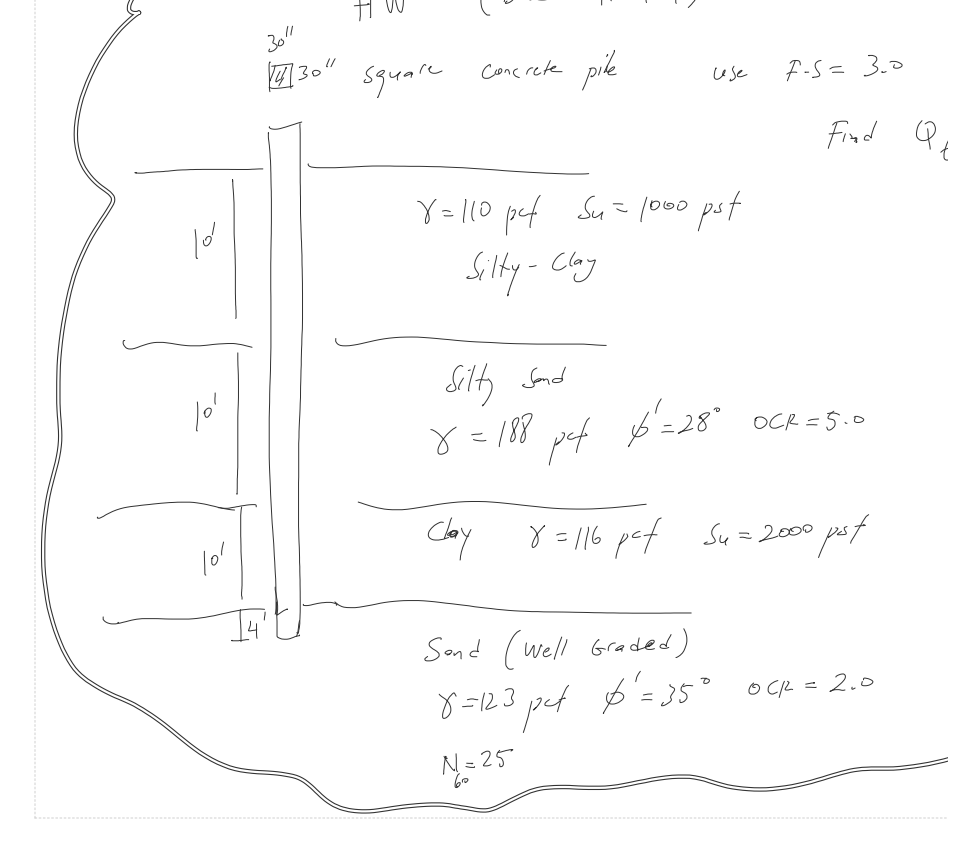 HW
30"
30" square concrete pile use F.S = 3.0
Find Qt
10'
γ = 110 pcf Su = 1000 psf
Silty - Clay
10'
Silty Sand
γ = 188 pcf ϕ' = 28° OCR = 5.0
10'
Clay γ = 116 pcf Su = 2000 psf
4'
Sand (Well Graded)
γ = 123 pcf ϕ' = 35° OCR = 2.0
N60 = 25